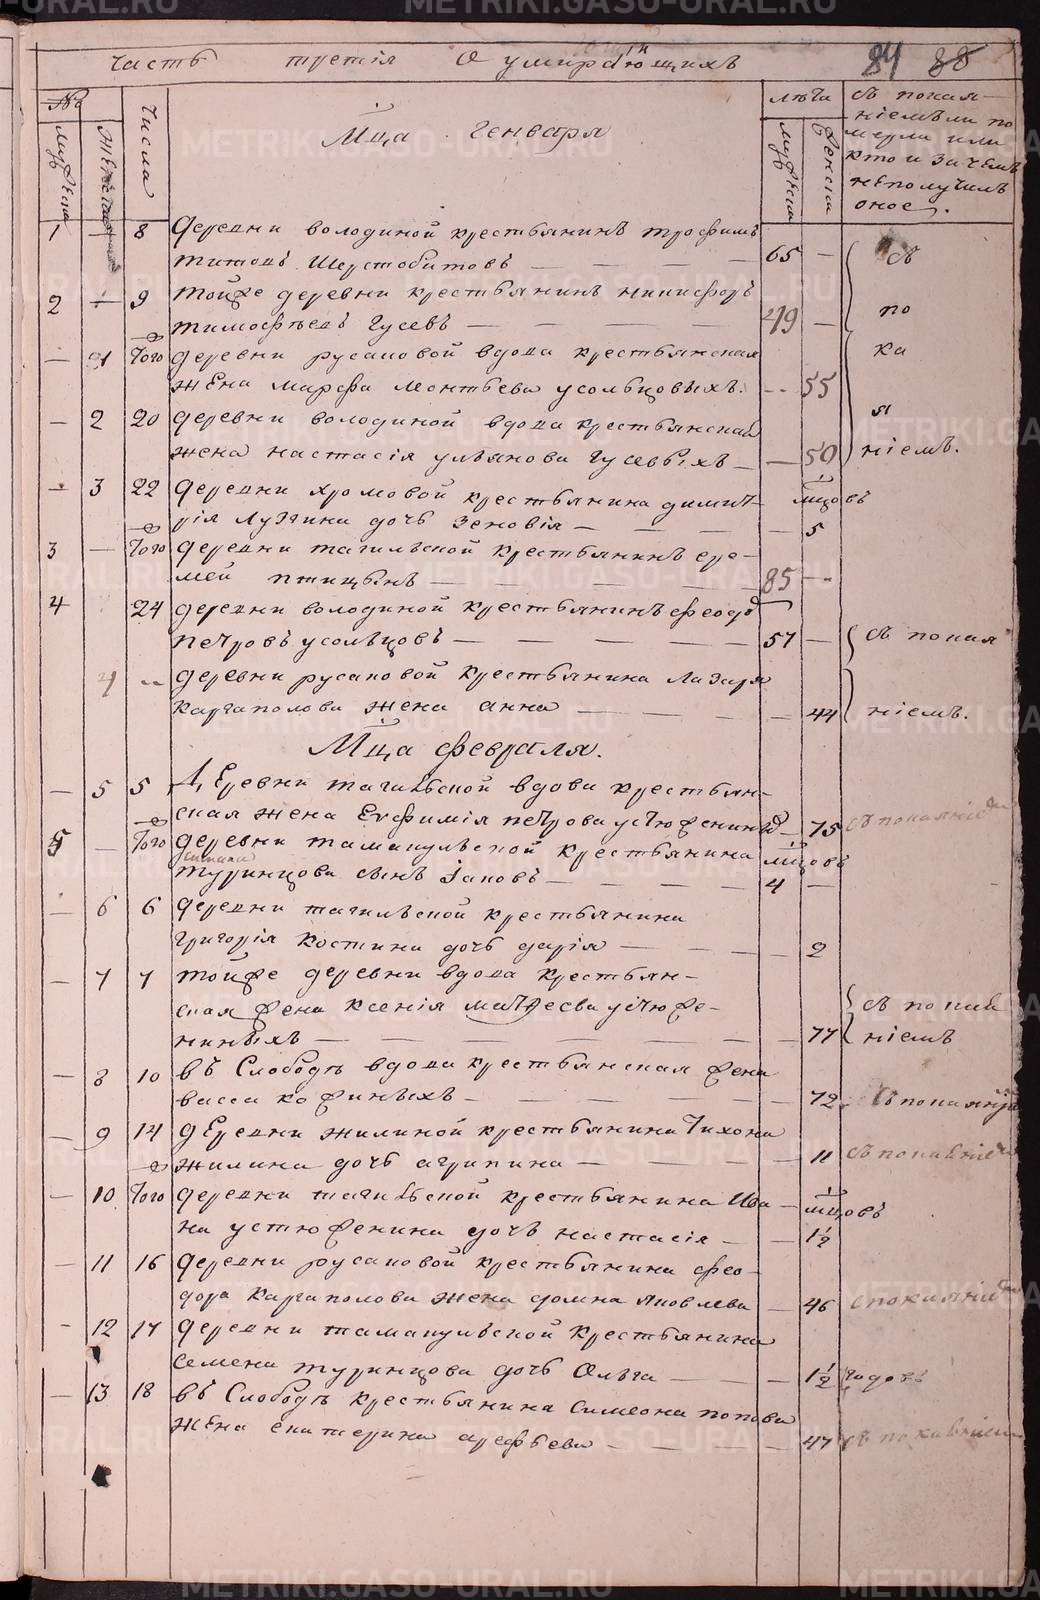 Часть третія О умирающихъ 84 88
№
Мужеска
Женска
Числа
Мца генваря
лѣта
Мужеска
Женска
съ покая-
ніемъ ли по
мерли или
кто и зачемъ
неполучилъ
оное.
1 8 деревни володиной крестьянинъ трофимъ
титовъ Шерстобитовъ 65
2 9 тойже деревни крестьянинъ никифоръ
тимофѣевъ Гусевъ 49
1 Того деревни русаковой вдова крестьянская
жена марфа леонтьева усольцовыхъ. 55
2 20 деревни володиной вдова крестьянская
жена настасія ульянова Гусевыхъ 50
съ
по
ка
я
ніемъ.
3 22 деревни хромовой крестьянина димит-
рія Лузгина дочь Зеновія 5
мцовъ
3 Того деревни тагильской крестьянинъ ере-
мей птицынъ 85
4 24 деревни володиной крестьянинъ феодо
петровъ усольцовъ 57 съ покая
4 деревни русаковой крестьянина Лазаря
каргаполова жена анна 44 ніемъ.
Мца февраля.
5 5 Деревни тагильской вдова крестьян-
ская жена Евфимія петрова устюжениныхъ 75 съ покаяніе
5 Того деревни тамакульской крестьянина мцовъ
туринцова сынъ Іаковъ 4
6 6 деревни тагильской крестьянина
григорія Костина дочь дарія 2
7 7 тойже деревни вдова крестьян-
ская жена ксенія матфеева устюже-
ниныхъ 77 съ покая
ніемъ
8 10 въ Слободѣ вдова крестьянская жена
васса кожиныхъ 72 съ покаяніе
9 14 деревни жилиной крестьянина Тихона
жилина дочь агрипина 11 съ покаяніе
10 Того деревни тагильской крестьянина Ива- мцовъ
на устюженина дочь настасія 1½
11 16 деревни русаковой крестьянина фео-
дора каргаполова жена домна яковлева 46 спокаяніе
12 17 деревни тамакульской крестьянина
семена туринцова дочь Ольга 1½ годовъ
13 18 въ Слободѣ крестьянина Симеона попова
жена екатерина арефьева 47 съ покаяніем